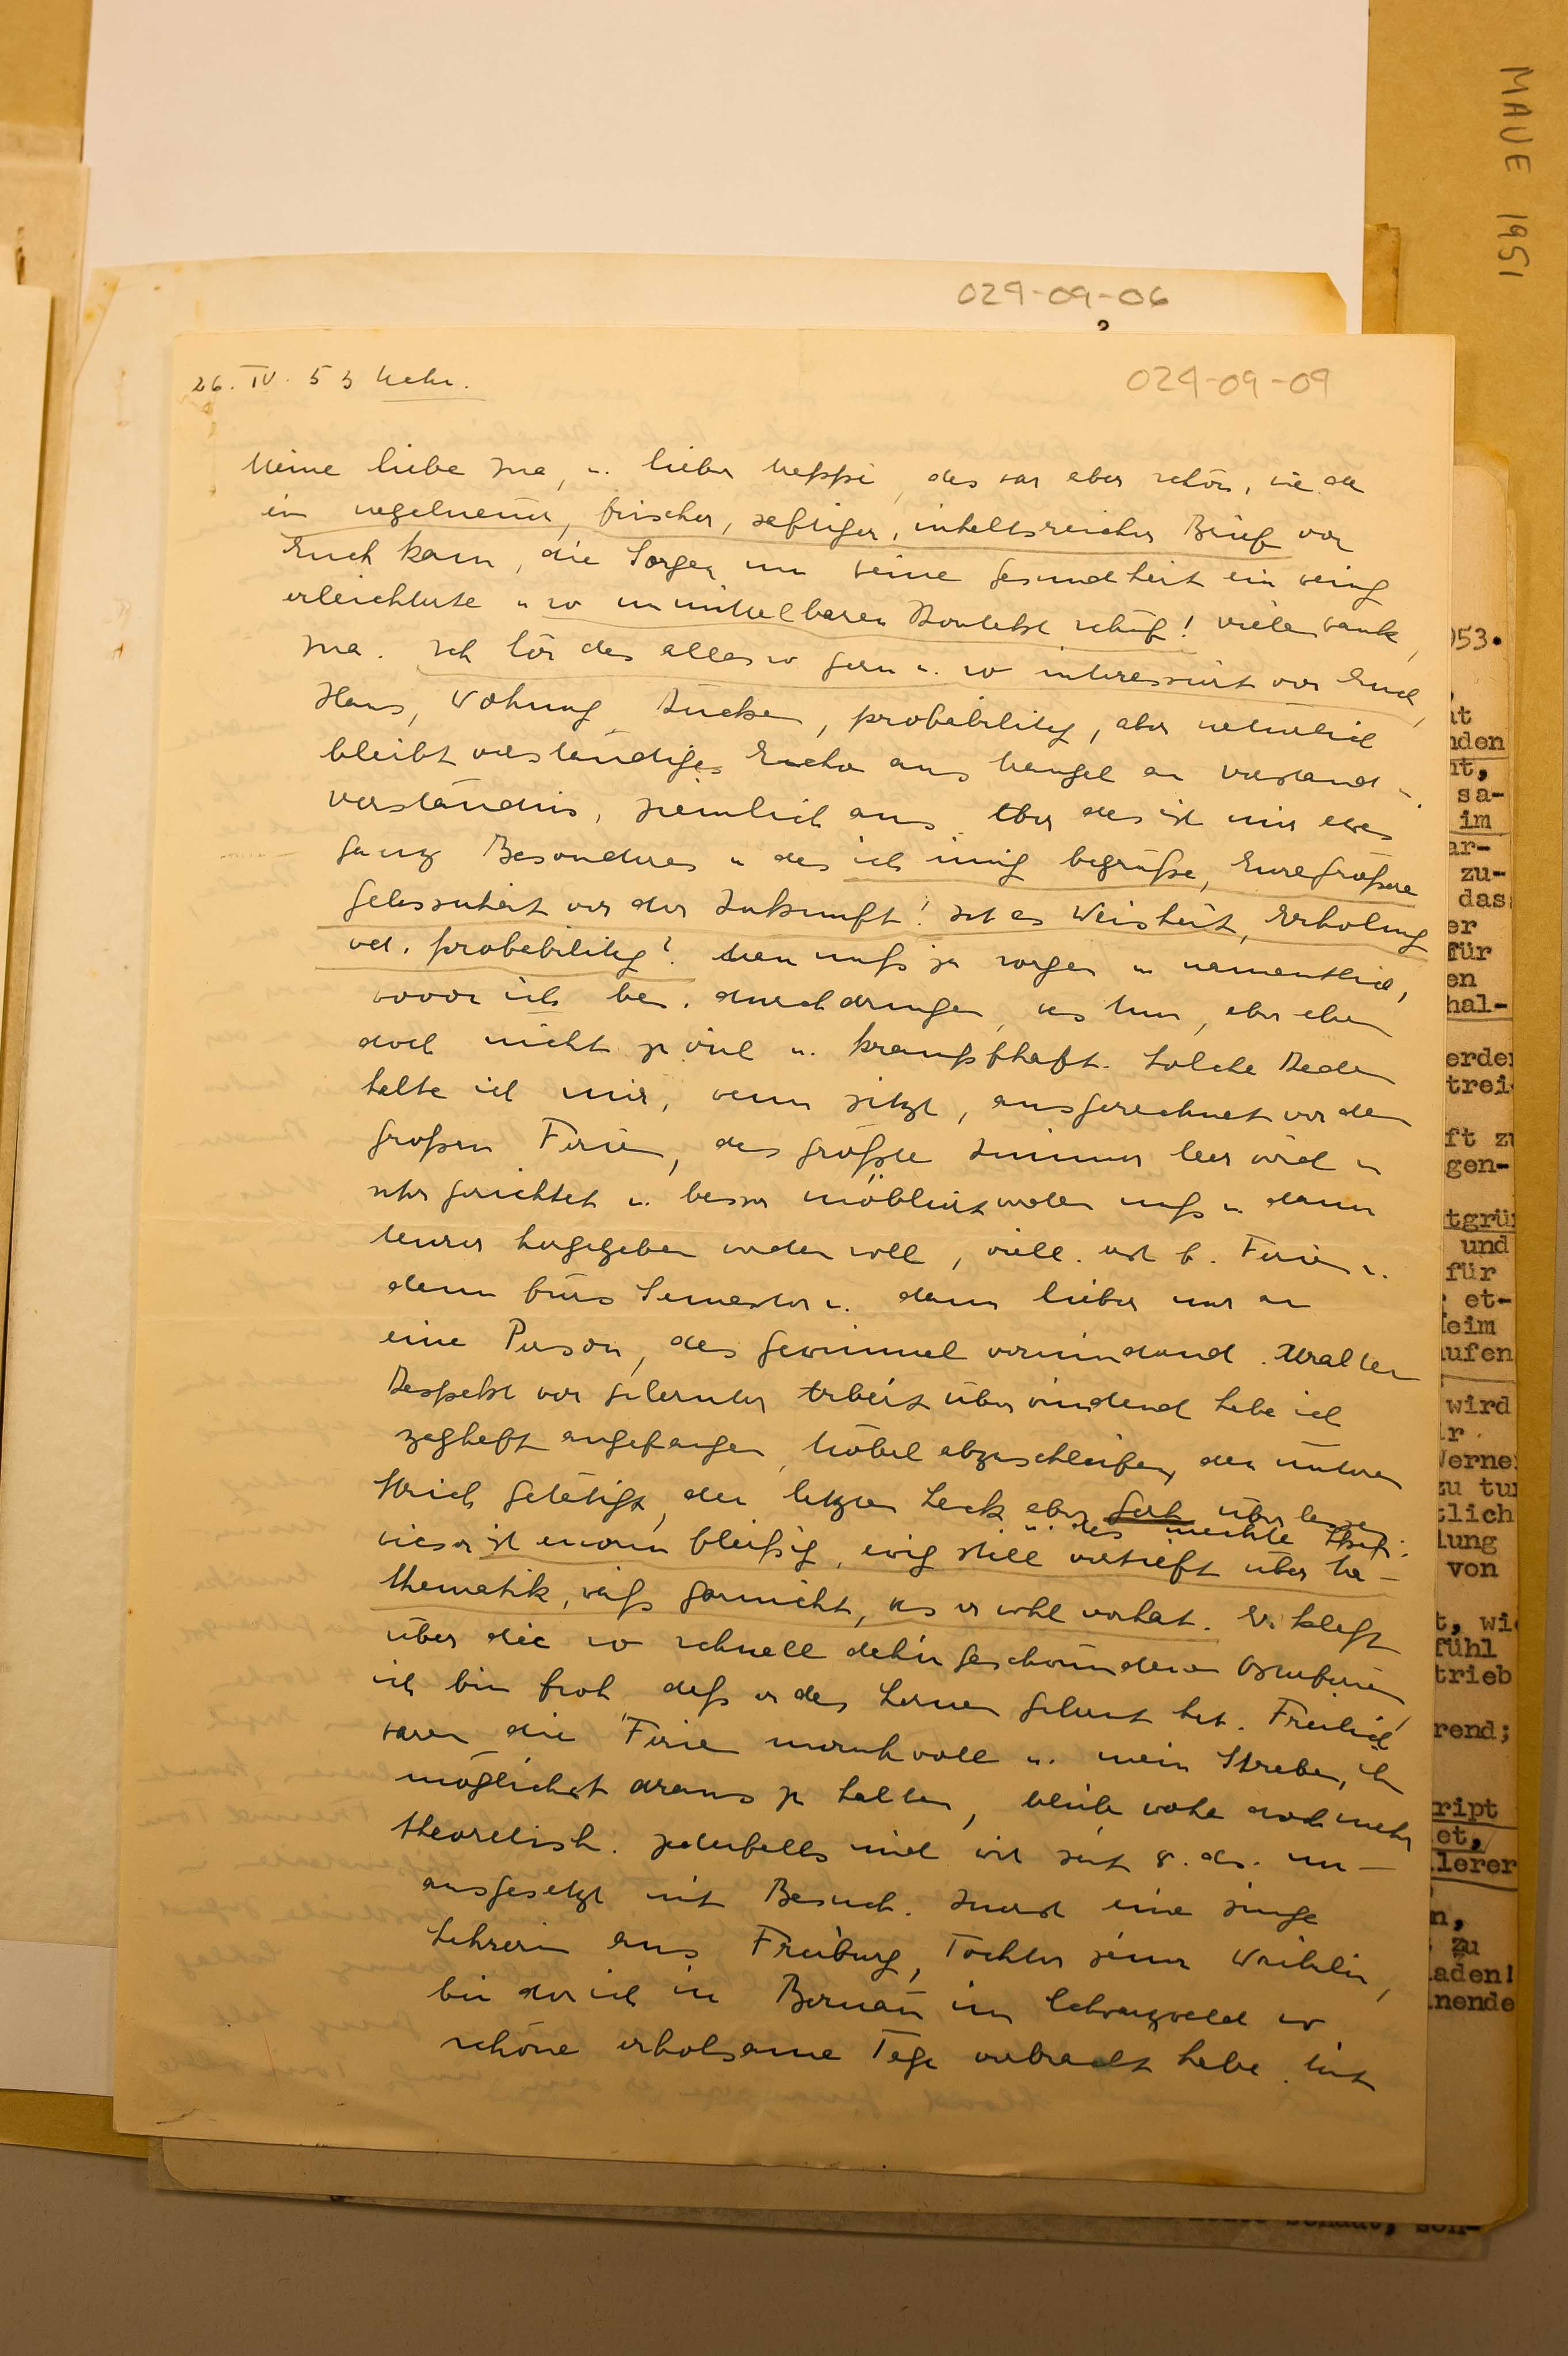 MAUE 1951
029-09-06
029-09-09
26. IV. 53 Mehr.
Meine liebe Ina, u. lieber Meppi, das war aber schön, wie da
ein nagelneuer, frischer, saftiger, inhaltsreicher Brief von
Euch kam, die Sorgen um seine Gesundheit ein wenig
erleichterte u so unmittelbaren Kontakt schuf! Vielen Dank,
Ina. Ich hör das alles so gern u. so interessiert von Euch,
Haus, Wohnung, probability, aber natürlich
bleibt verständiges Echo aus Mangel an Verstand u.
Verständnis, ziemlich aus. Aber das ist mir etwas
ganz Besonderes u das ich innig begrüße, Eure größere
Gelassenheit vor der Zukunft! Ist es Weisheit, Erholung
od. probability? Man muß ja sorgen u namentlich,
wovor ich bes. durchdrungen, was tun, aber eben
doch nicht zu viel u. krampfhaft. Solche Reden
halte ich mir, wenn jetzt, ausgerechnet vor den
großen Ferien, das größte Zimmer leer wird u
hergerichtet u. besser möbliert werden muß u dann
teurer hergegeben werden soll, viell. erst f. Ferien u.
dann fürs Semester u. dann lieber nur an
eine Person, das Gewimmel vermindernd. Uralten
Respekt vor gelernter Arbeit überwindend habe ich
zaghaft angefangen, Möbel abzuschleifen, den unteren
Strich getätigt, den letzten Lack aber überlassen.
dieser ist enorm fleißig, ewig still vertieft über Ma-
thematik, weiß garnicht, was er wohl vorhat. Er klagt
über die so schnell dahingeschwundenen Osterferien,
ich bin froh daß er das Lernen gelernt hat. Freilich
waren die Ferien unruhvoll u. mein Streben, ihn
möglichst draus zu halten, blieb wohl doch mehr
theoretisch. Jedenfalls sind wir seit 8. ds. un-
ausgesetzt mit Besuch. Zuerst eine junge
Lehrerin aus Freiburg, Tochter jener
bei der ich in Bernau im Schwarzwald so
schöne erholsame Tage verbracht habe. Mit
953.
at
nden
ht,
sa-
im
ar-
zu-
das
er
für
en
hal-
erden
trei-
ft zu
gen-
tgrün
und
für
et-
eim
aufen
wird
r
Werner
zu tun
tlich
lung
von
t, wie
fühl
trieb
rend;
ript
et,
lerer
n,
zu
aden!
nende